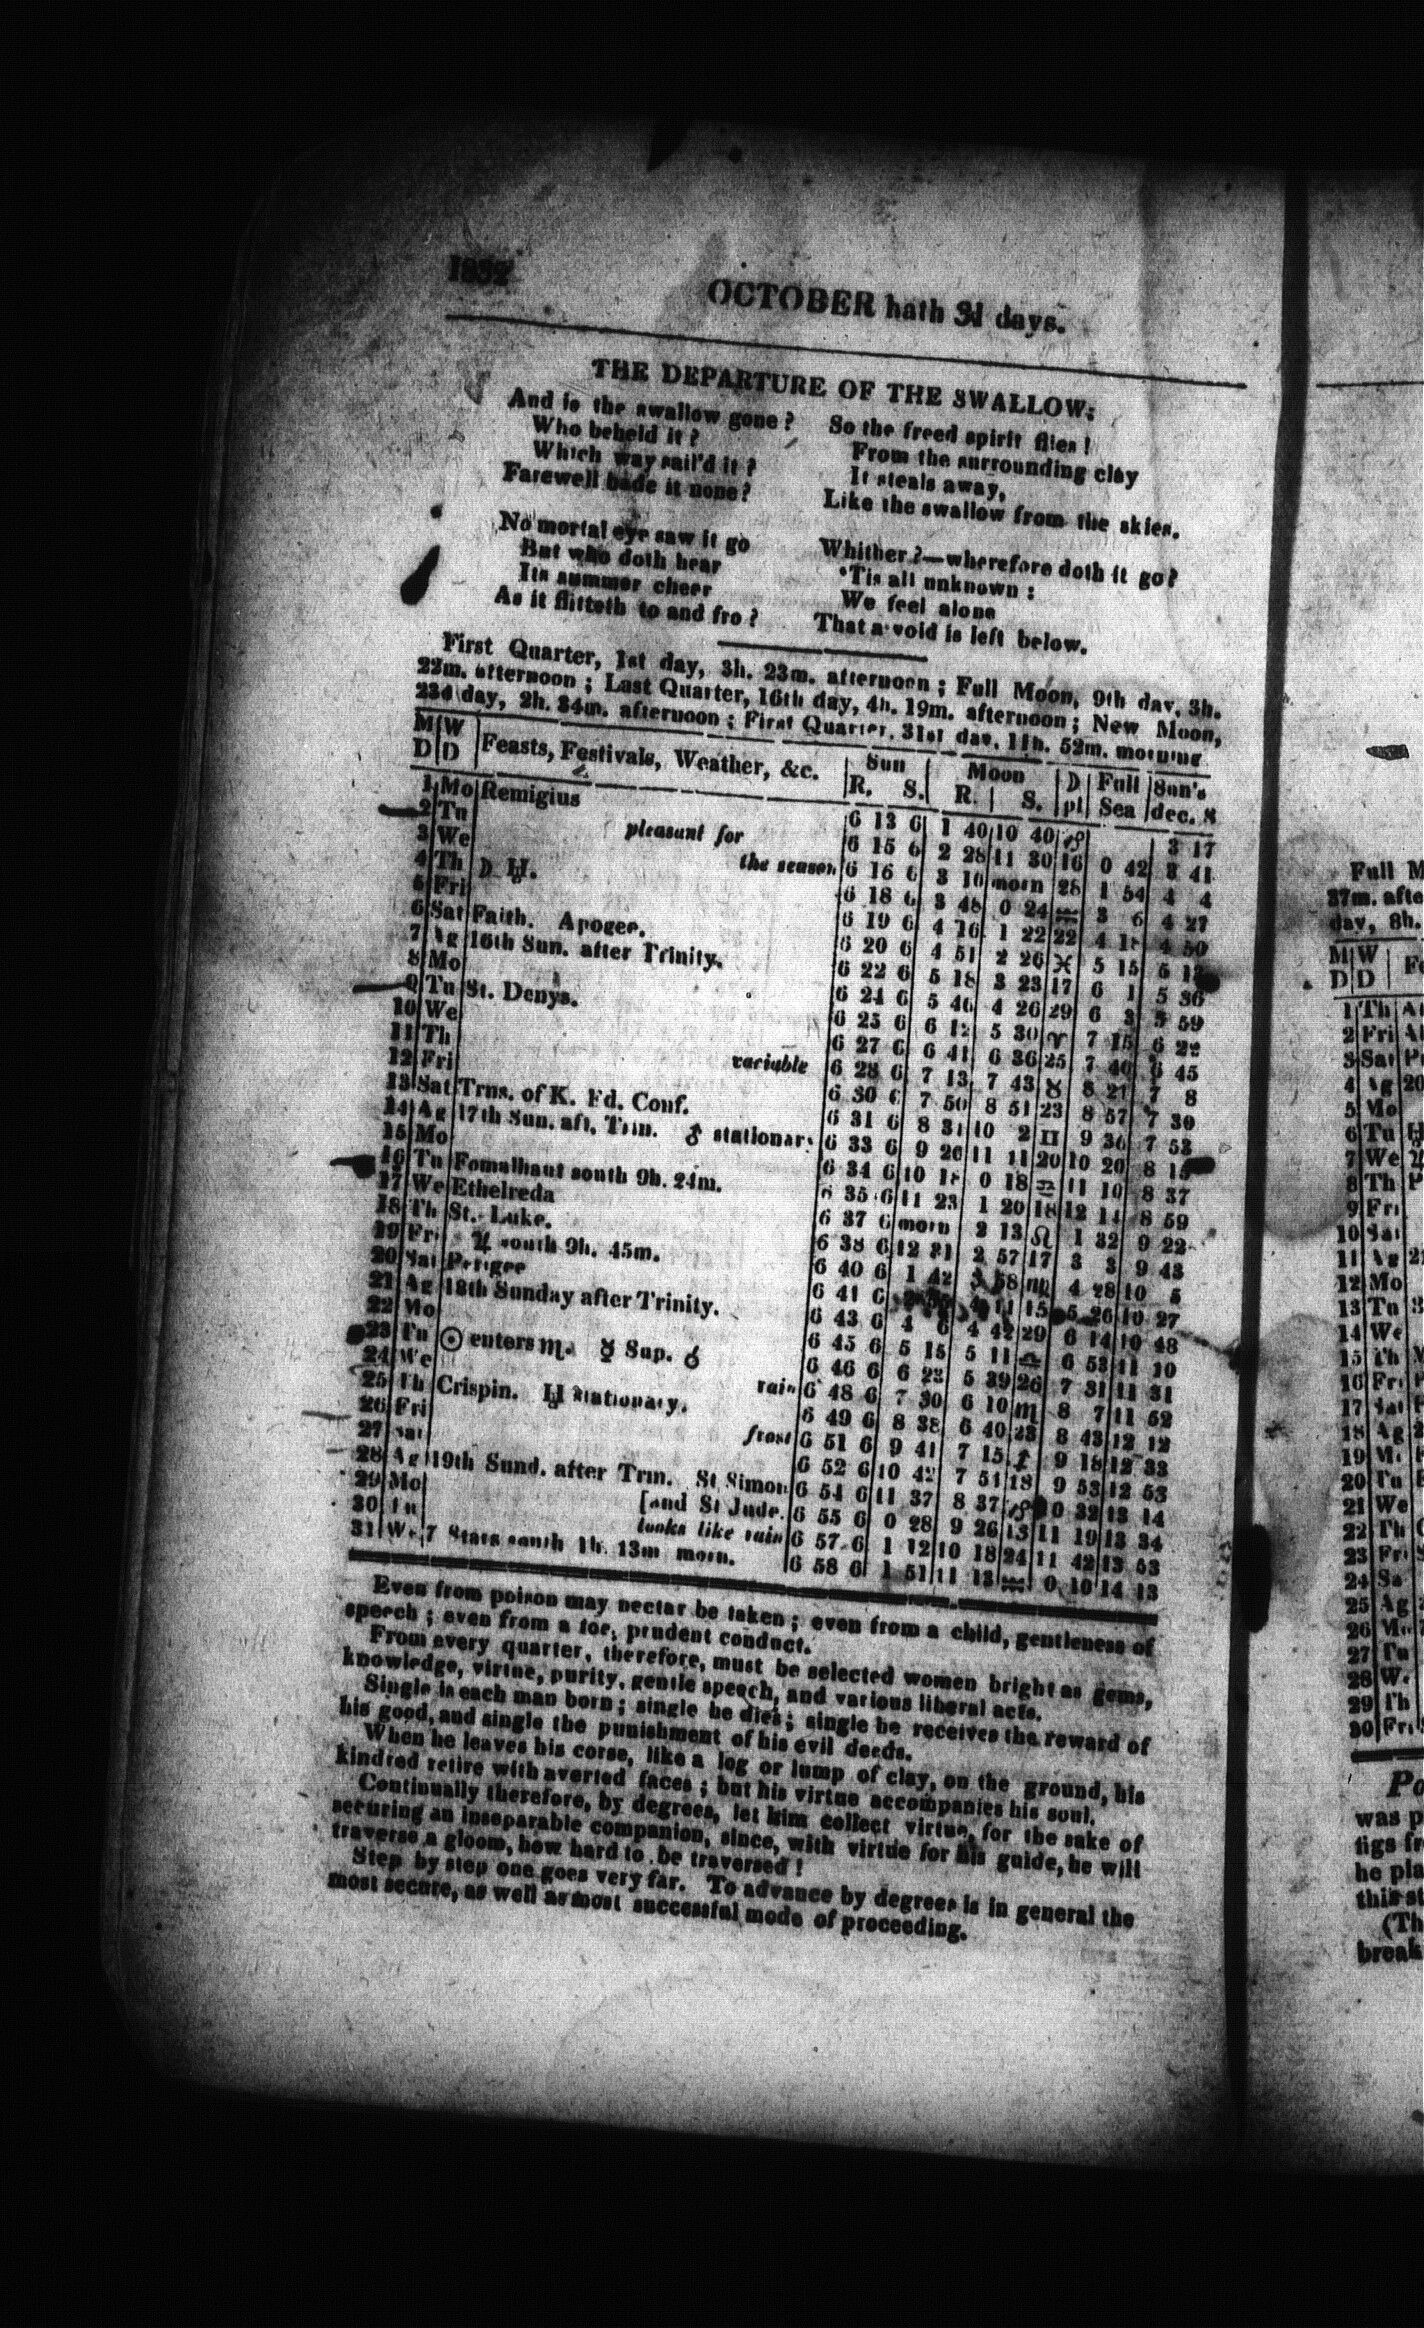 1832
OCTOBER hath 31 days.
THE DEPARTURE OF THE SWALLOW.
And is the swallow gone?
Who beheld it?
Which way sail'd it?
Farewell bade it none?
No mortal eye saw it go
But who doth hear
Its summer cheer
As it flitteth to and fro?
So the freed spirit flies!
From the surrounding clay
It steals away,
Like the swallow from the skies.
Whither?—wherefore doth it go?
'Tis all unknown:
We feel alone
That a void is left below.
First Quarter, 1st day, 3h. 23m. afternoon; Full Moon, 9th day, 3h.
22m. afternoon; Last Quarter, 16th day, 4h. 19m. afternoon; New Moon,
23d day, 2h. 34m. afternoon; First Quarter, 31st day, 11h. 52m. morning
M W Feasts, Festivals, Weather, &c. Sun Moon D Full Sun's
D D R. S. R. S. pl Sea dec. S
1 Mo Remigius 6 13 6 1 40 10 40 ♑ 3 17
2 Tu pleasant for 6 15 6 2 28 11 30 16 0 42 3 41
3 We the season 6 16 6 3 10 morn 28 1 54 4 4
4 Th ☽ ♅. 6 18 6 3 48 0 24 ♒ 3 6 4 27
5 Fri 6 19 6 4 16 1 22 22 4 18 4 50
6 Sat Faith. Apogee. 6 20 6 4 51 2 26 ♓ 5 15 5 13
7 Ag 16th Sun. after Trinity. 6 22 6 5 18 3 23 17 6 1 5 36
8 Mo 6 24 6 5 46 4 26 29 6 3 5 59
9 Tu St. Denys. 6 25 6 6 12 5 30 ♈ 7 15 6 22
10 We 6 27 6 6 41 6 36 25 7 46 6 45
11 Th variable 6 28 6 7 13 7 43 ♉ 8 21 7 8
12 Fri 6 30 6 7 50 8 51 23 8 57 7 30
13 Sat Trns. of K. Ed. Conf. 6 31 6 8 31 10 2 ♊ 9 36 7 53
14 Ag 17th Sun. aft. Trin. ♂ stationary 6 33 6 9 20 11 11 20 10 20 8 15
15 Mo 6 34 6 10 18 0 18 ♋ 11 10 8 37
16 Tu Fomalhaut south 9h. 24m. 6 35 6 11 23 1 20 18 12 14 8 59
17 We Ethelreda 6 37 6 morn 2 13 ♌ 1 32 9 22
18 Th St. Luke. 6 38 6 12 31 2 57 17 3 3 9 43
19 Fri ♃ south 9h. 45m. 6 40 6 1 42 3 38 ♍ 4 28 10 5
20 Sat Perigee 6 41 6 4 11 15 5 26 10 27
21 Ag 18th Sunday after Trinity. 6 43 6 4 6 4 42 29 6 14 10 48
22 Mo 6 45 6 5 15 5 11 ♎ 6 53 11 10
23 Tu ☉ enters ♏. ☿ Sup. ☌ 6 46 6 6 22 5 39 26 7 31 11 31
24 We rain 6 48 6 7 30 6 10 ♏ 8 7 11 52
25 Th Crispin. ♅ stationary. 6 49 6 8 38 6 40 23 8 43 12 12
26 Fri frost 6 51 6 9 41 7 15 ♐ 9 18 12 33
27 Sat 6 52 6 10 42 7 51 18 9 53 12 53
28 Ag 19th Sund. after Trin. St Simon 6 54 6 11 37 8 37 ♑ 10 32 13 14
29 Mo [and St Jude. 6 55 6 0 28 9 26 13 11 19 13 34
30 Tu looks like rain 6 57 6 1 12 10 18 24 11 42 13 53
31 We 7 Stars south 1h. 13m morn. 6 58 6 1 51 11 13 ♒ 0 10 14 13
Even from poison may nectar be taken; even from a child, gentleness of
speech; even from a foe, prudent conduct.
From every quarter, therefore, must be selected women bright as gems,
knowledge, virtue, purity, gentle speech, and various liberal acts.
Single is each man born; single he dies; single he receives the reward of
his good, and single the punishment of his evil deeds.
When he leaves his corse, like a log or lump of clay, on the ground, his
kindred retire with averted faces; but his virtue accompanies his soul.
Continually therefore, by degrees, let him collect virtue, for the sake of
securing an inseparable companion, since, with virtue for his guide, he will
traverse a gloom, how hard to be traversed!
Step by step one goes very far. To advance by degrees is in general the
most secure, as well as most successful mode of proceeding.
Full M
37m. afte
day, 8h.
M W Fe
D D
1 Th
2 Fri
3 Sat
4 Ag 20
5 Mo
6 Tu
7 We
8 Th
9 Fri
10 Sat
11 Ag 21
12 Mo
13 Tu
14 We
15 Th
16 Fri
17 Sat
18 Ag
19 Mo
20 Tu
21 We
22 Th
23 Fri
24 Sa
25 Ag
26 Mo
27 Tu
28 We
29 Th
30 Fri
Po
was p
figs fr
he pla
this st
(Th
break